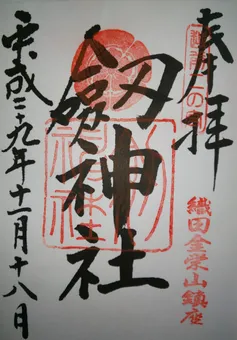 奉拝
越前二の宮
織田金栄山鎮座
劔神社
平成二十九年十一月十八日